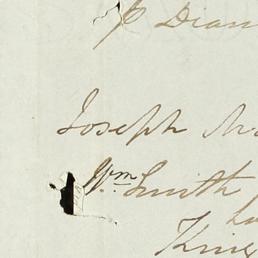 p Dian
Joseph Mc
Wm. Smith
Lo
King